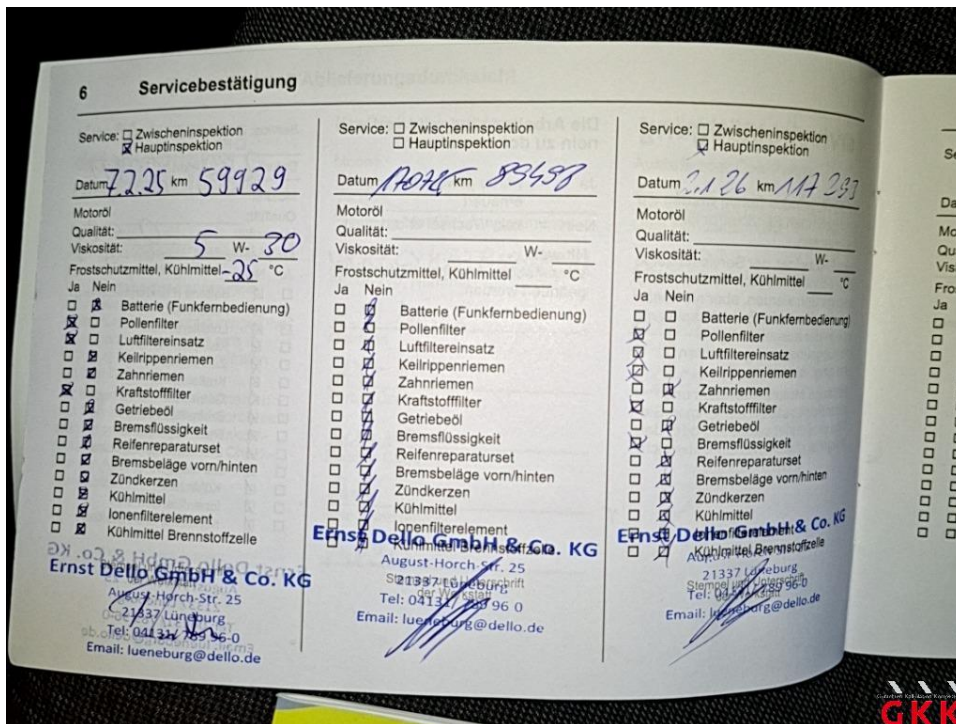 6 Servicebestätigung
Service: Zwischeninspektion
Hauptinspektion
Datum 7.2.25 km 59929
Motoröl
Qualität:
Viskosität: 5 W- 30
Frostschutzmittel, Kühlmittel -25 °C
Ja Nein
Batterie (Funkfernbedienung)
Pollenfilter
Luftfiltereinsatz
Keilrippenriemen
Zahnriemen
Kraftstofffilter
Getriebeöl
Bremsflüssigkeit
Reifenreparaturset
Bremsbeläge vorn/hinten
Zündkerzen
Kühlmittel
Ionenfilterelement
Kühlmittel Brennstoffzelle
Ernst Dello GmbH & Co. KG
August-Horch-Str. 25
21337 Lüneburg
Tel: 04131/ 789 96-0
Email: lueneburg@dello.de
Service: Zwischeninspektion
Hauptinspektion
Datum km 89498
Motoröl
Qualität:
Viskosität: W-
Frostschutzmittel, Kühlmittel °C
Ja Nein
Batterie (Funkfernbedienung)
Pollenfilter
Luftfiltereinsatz
Keilrippenriemen
Zahnriemen
Kraftstofffilter
Getriebeöl
Bremsflüssigkeit
Reifenreparaturset
Bremsbeläge vorn/hinten
Zündkerzen
Kühlmittel
Ionenfilterelement
Kühlmittel Brennstoffzelle
Ernst Dello GmbH & Co. KG
August-Horch-Str. 25
Stempel und Unterschrift
der Werkstatt
21337 Lüneburg
Tel: 04131/ 789 96 0
Email: lueneburg@dello.de
Service: Zwischeninspektion
Hauptinspektion
Datum 2.1.26 km 117 293
Motoröl
Qualität:
Viskosität: W-
Frostschutzmittel, Kühlmittel °C
Ja Nein
Batterie (Funkfernbedienung)
Pollenfilter
Luftfiltereinsatz
Keilrippenriemen
Zahnriemen
Kraftstofffilter
Getriebeöl
Bremsflüssigkeit
Reifenreparaturset
Bremsbeläge vorn/hinten
Zündkerzen
Kühlmittel
Ionenfilterelement
Kühlmittel Brennstoffzelle
Ernst Dello GmbH & Co. KG
August-Horch-Str. 25
21337 Lüneburg
Stempel und Unterschrift
Tel: 04131/ 789 96 0
Email: lueneburg@dello.de
GKK